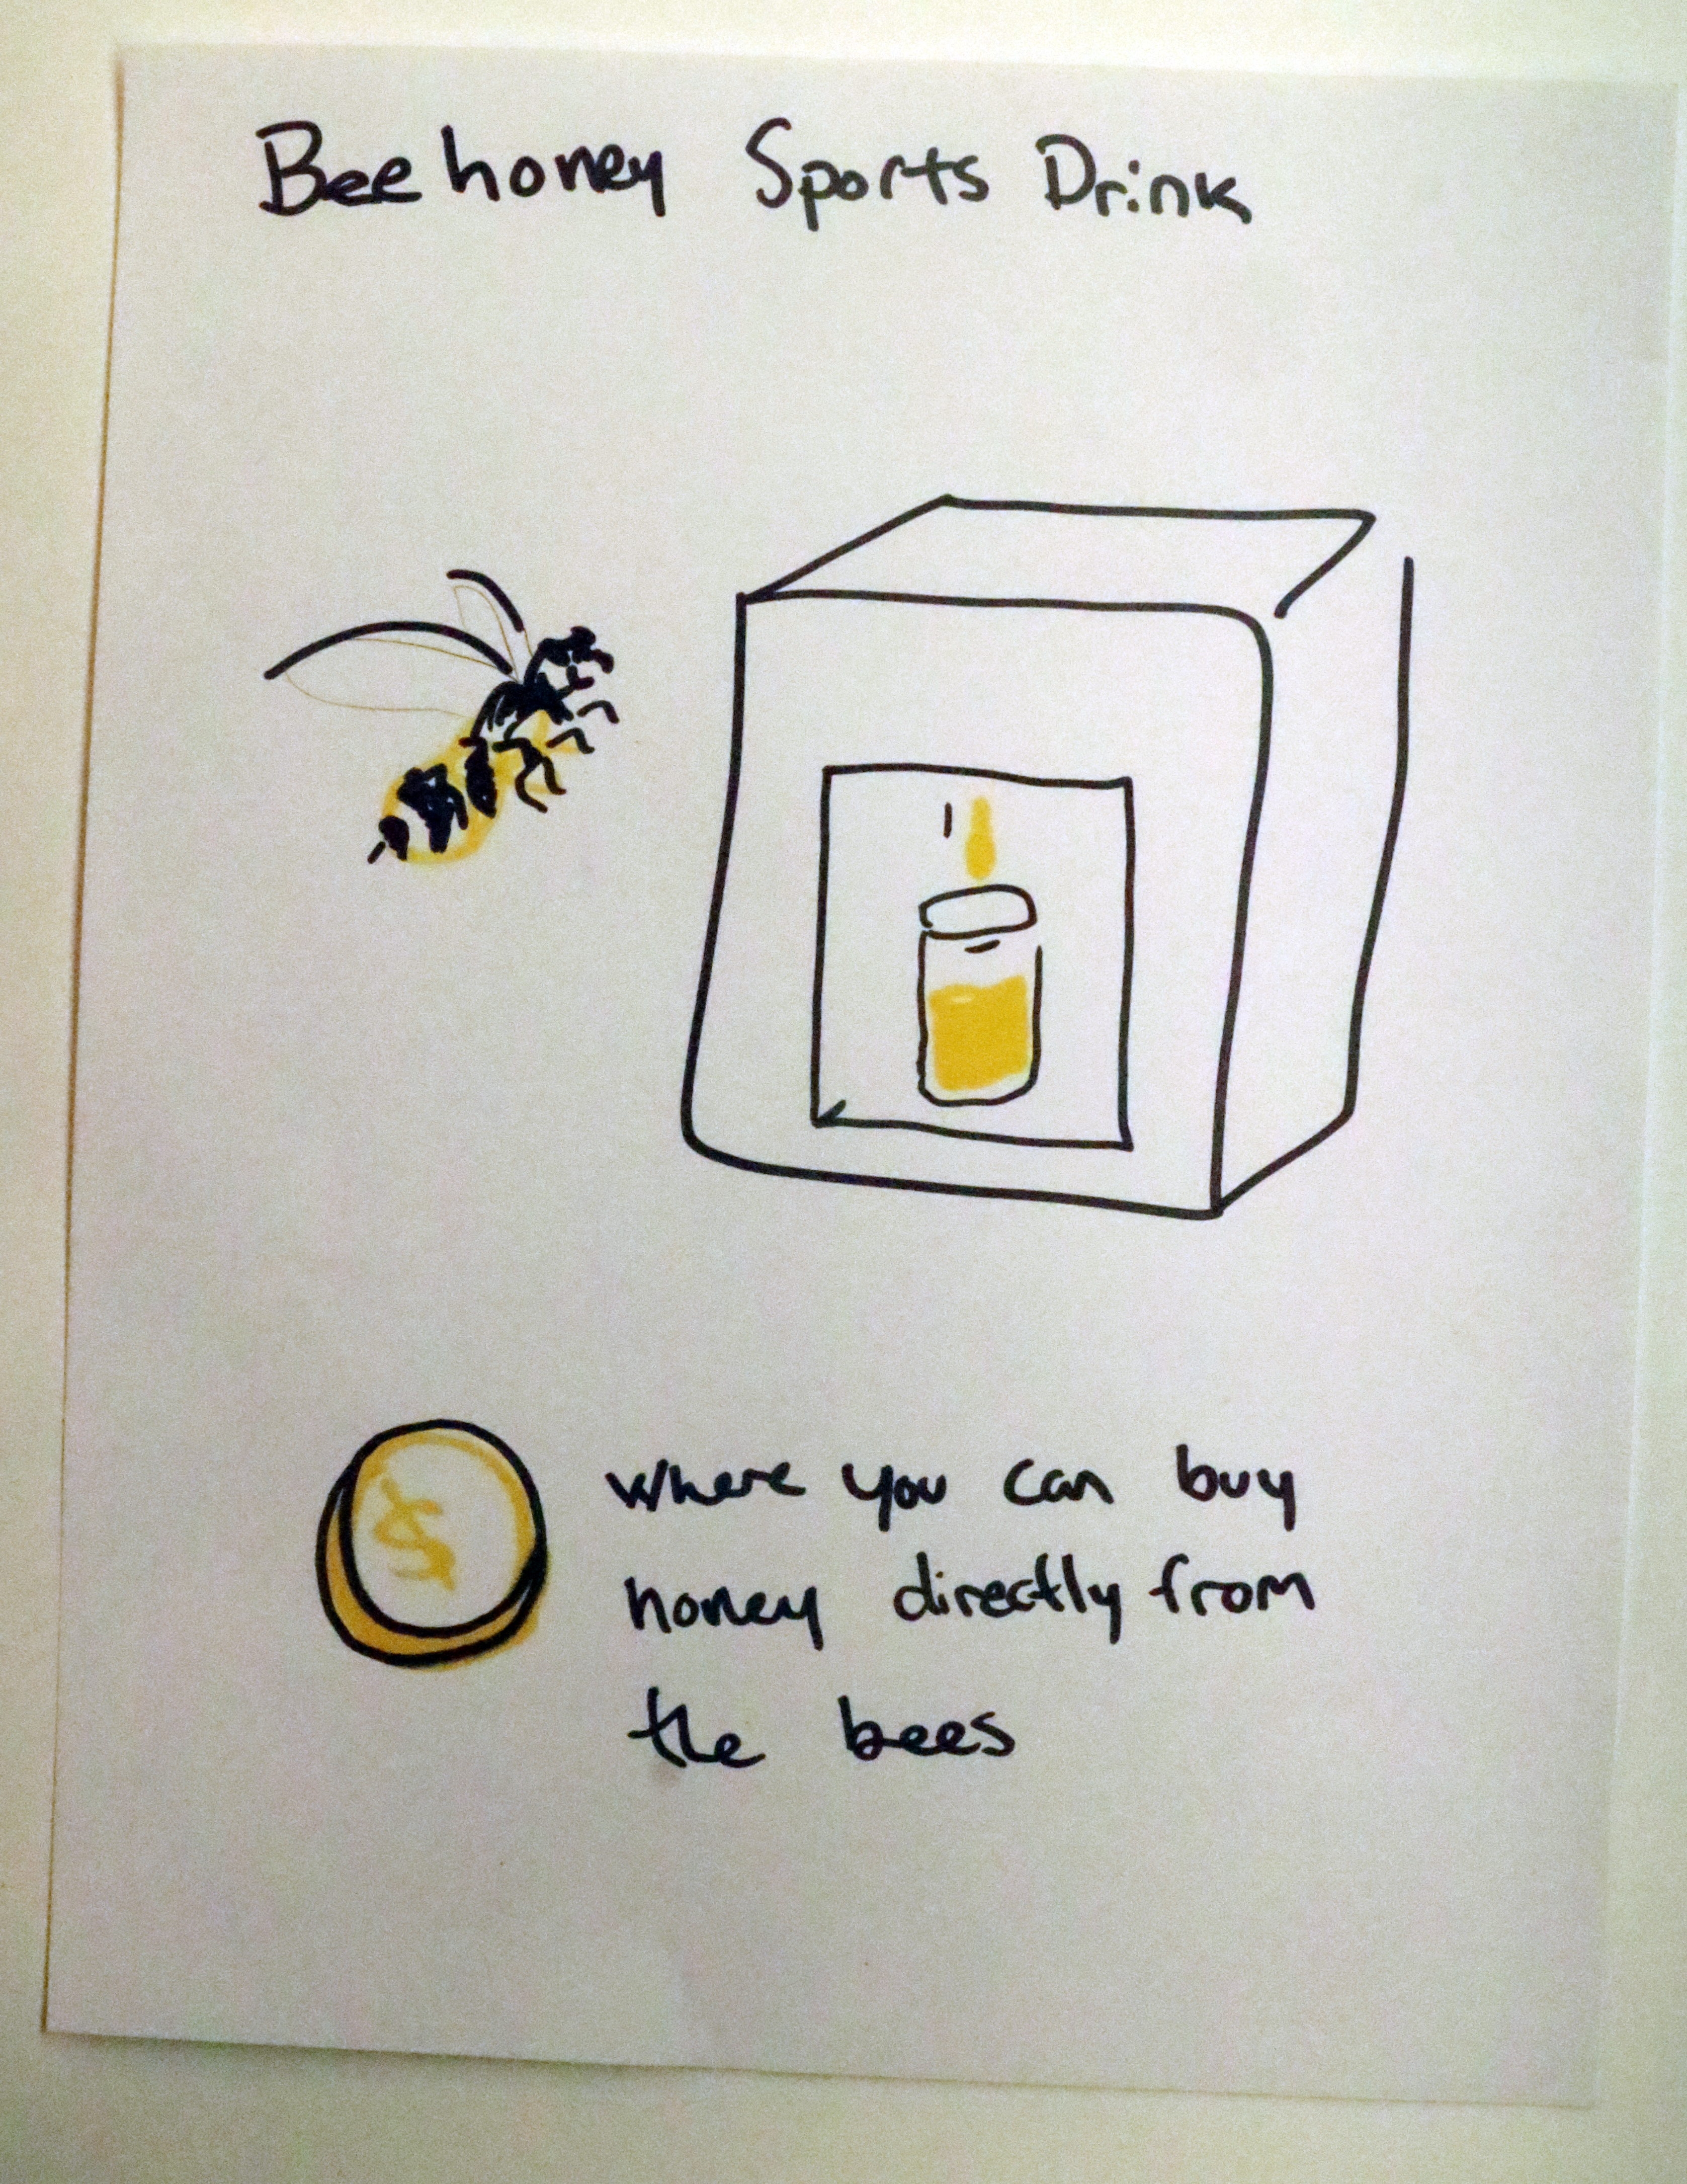 Bee honey Sports Drink
$
where you can buy
honey directly from
the bees